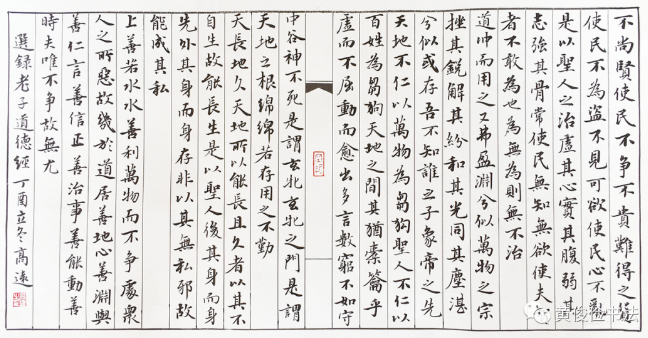 不尚賢使民不爭不貴難得之貨
使民不為盜不見可欲使民心不亂
是以聖人之治虛其心實其腹弱其
志強其骨常使民無知無欲使夫
者不敢為也為無為則無不治
道冲而用之又弗盈淵兮似萬物之宗
挫其銳解其紛和其光同其塵湛
兮似或存吾不知誰之子象帝之先
天地不仁以萬物為芻狗聖人不仁以
百姓為芻狗天地之間其猶橐籥乎
虛而不屈動而愈出多言數窮不如守
中谷神不死是謂玄牝玄牝之門是謂
天地之根綿綿若存用之不勤
天長地久天地所以能長且久者以其不
自生故能長生是以聖人後其身而身
先外其身而身存非以其無私邪故
能成其私
上善若水水善利萬物而不爭處衆
人之所惡故幾於道居善地心善淵與
善仁言善信正善治事善能動善
時夫唯不爭故無尤
選錄老子道德經 丁酉立冬高遠
黄俊俭书法